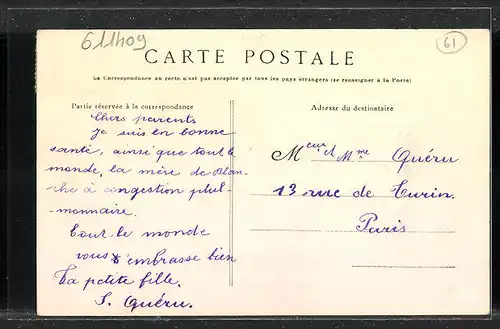 611409
61
CARTE POSTALE
La Correspondance au recto n'est pas acceptée par tous les pays étrangers (se renseigner à la Poste)
Partie réservée à la correspondance
Adresse du destinataire
Chers parents
Je suis en bonne
santé, ainsi que tout le
monde, la mère de Blan-
che à congestion pul-
monnaire.
Tout le monde
vous embrasse bien
Ta petite fille.
S. Quéru.
Meur et Mme Quéru
13 rue de Turin.
Paris